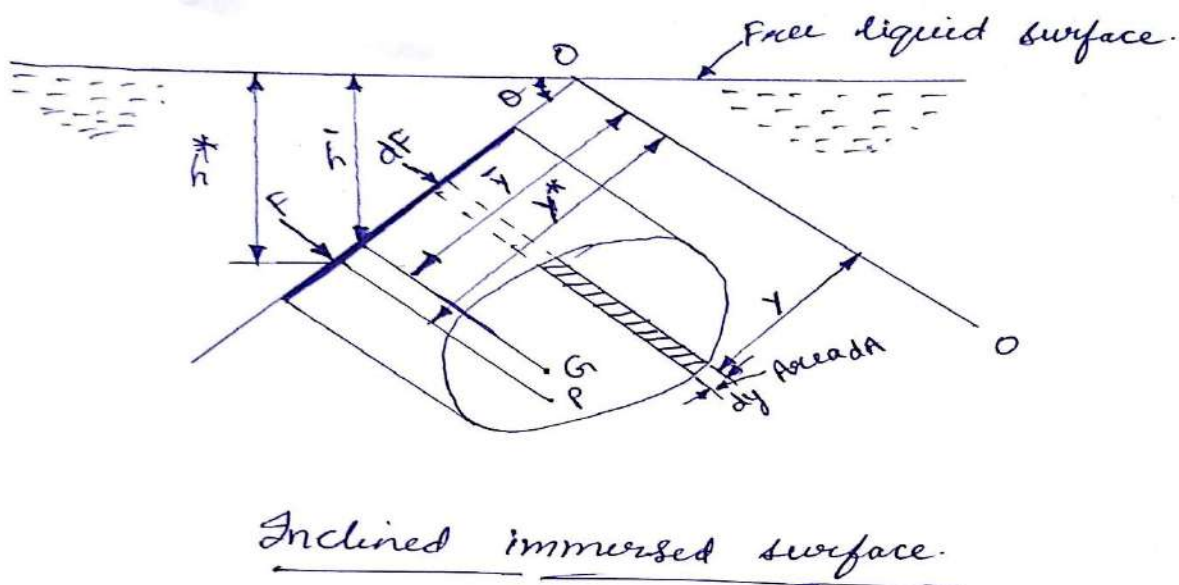 Free liquid surface.
O
θ
h*
h̄
dF
ȳ
y*
F
y
O
G
P
Area dA
dy
Inclined immersed surface.